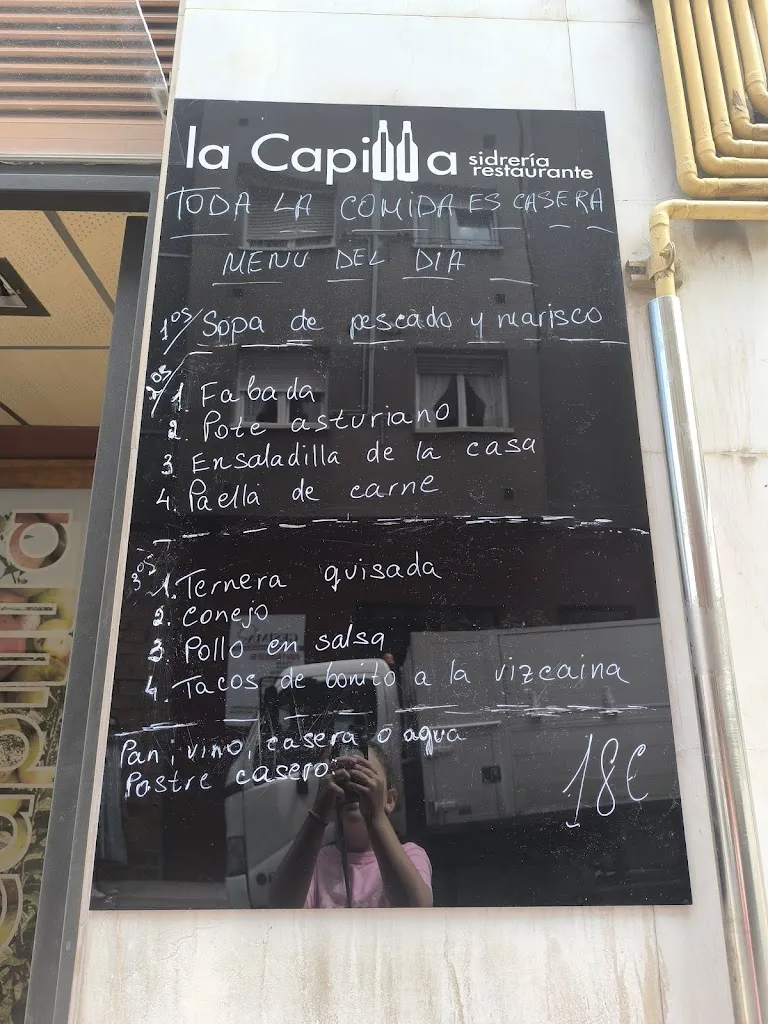 la Capilla sidrería restaurante
TODA LA COMIDA ES CASERA
MENU DEL DIA
1os/ Sopa de pescado y marisco
2os/ 1. Fabada
2. Pote asturiano
3 Ensaladilla de la casa
4. Paella de carne
3os 1. Ternera guisada
2. Conejo
3. Pollo en salsa
4. Tacos de bonito a la vizcaina
Pan, vino, casera o agua
Postre casero.
18€